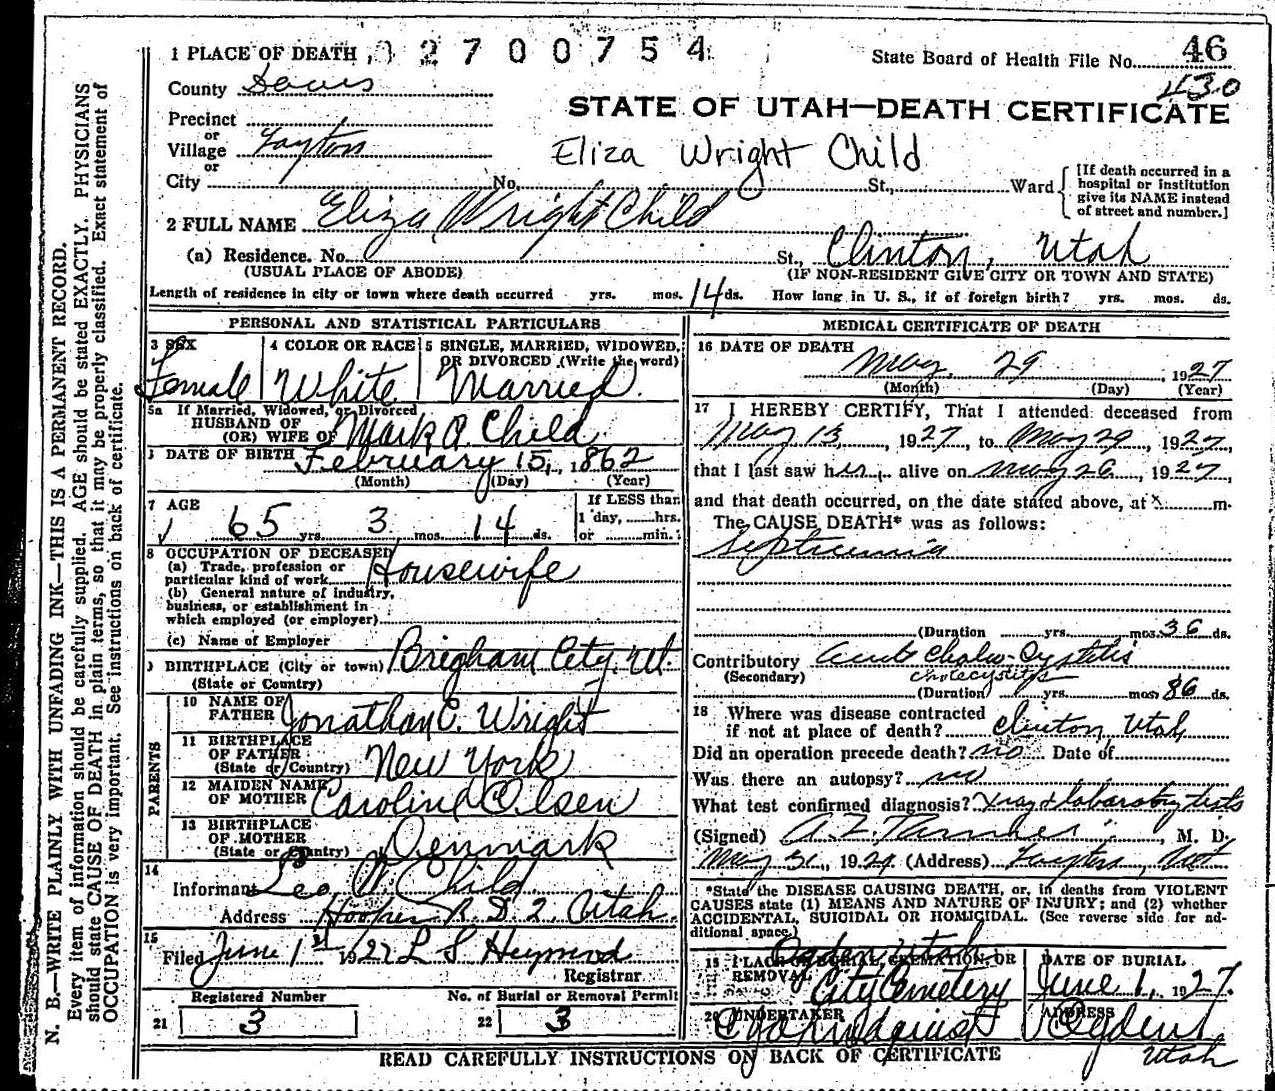 1 PLACE OF DEATH 02700754 State Board of Health File No. 46
430
County Davis
STATE OF UTAH—DEATH CERTIFICATE
Precinct
or
Village Layton
Eliza Wright Child
or
City No. St., Ward [If death occurred in a hospital or institution give its NAME instead of street and number.]
2 FULL NAME Eliza Wright Child
(a) Residence. No. St., Clinton, Utah
(USUAL PLACE OF ABODE) (IF NON-RESIDENT GIVE CITY OR TOWN AND STATE)
Length of residence in city or town where death occurred yrs. mos. 14 ds. How long in U. S., if of foreign birth? yrs. mos. ds.
PERSONAL AND STATISTICAL PARTICULARS
3 SEX 4 COLOR OR RACE 5 SINGLE, MARRIED, WIDOWED,
OR DIVORCED (Write the word)
Female White Married
5a If Married, Widowed, or Divorced
HUSBAND OF
(OR) WIFE OF Mark A. Child
DATE OF BIRTH February 15, 1862
(Month) (Day) (Year)
7 AGE If LESS than
1 day, hrs.
65 yrs. 3 mos. 14 ds. or min.
8 OCCUPATION OF DECEASED
(a) Trade, profession or
particular kind of work Housewife
(b) General nature of industry,
business, or establishment in
which employed (or employer)
(c) Name of Employer
BIRTHPLACE (City or town) Brigham City, Ut.
(State or Country)
PARENTS
10 NAME OF
FATHER Jonathan C. Wright
11 BIRTHPLACE
OF FATHER New York
(State or Country)
12 MAIDEN NAME
OF MOTHER Caroline Olsen
13 BIRTHPLACE
OF MOTHER Denmark
(State or Country)
14
Informant Leo W. Child
Address Hooper R. D. 2. Utah.
15
Filed June 1st 1927 L S Heywood
Registrar
Registered Number No. of Burial or Removal Permit
21 3 22 3
MEDICAL CERTIFICATE OF DEATH
16 DATE OF DEATH
May 29, 1927
(Month) (Day) (Year)
17 I HEREBY CERTIFY, That I attended deceased from
May 13, 1927, to May 29, 1927,
that I last saw her alive on May 26, 1927,
and that death occurred, on the date stated above, at m.
The CAUSE DEATH* was as follows:
Septicemia
(Duration yrs. mos. 36 ds.
Contributory Acute Chole-Cystitis
(Secondary) cholecystitis
(Duration yrs. mos. 86 ds.
18 Where was disease contracted
if not at place of death? Clinton, Utah
Did an operation precede death? no Date of
Was there an autopsy? no
What test confirmed diagnosis? Xray & laboratory tests
(Signed) A. Z. Tanner, M. D.
May 31, 1927 (Address) Layton, Utah
*State the DISEASE CAUSING DEATH, or, in deaths from VIOLENT
CAUSES state (1) MEANS AND NATURE OF INJURY; and (2) whether
ACCIDENTAL, SUICIDAL OR HOMICIDAL. (See reverse side for additional space.)
Ogden Utah
19 PLACE OF BURIAL, CREMATION, OR REMOVAL DATE OF BURIAL
City Cemetery June 1, 1927.
20 UNDERTAKER ADDRESS
Ogden,
Utah
READ CAREFULLY INSTRUCTIONS ON BACK OF CERTIFICATE
N. B.—WRITE PLAINLY WITH UNFADING INK—THIS IS A PERMANENT RECORD.
Every item of information should be carefully supplied. AGE should be stated EXACTLY. PHYSICIANS
should state CAUSE OF DEATH in plain terms, so that it may be properly classified. Exact statement of
OCCUPATION is very important. See instructions on back of certificate.